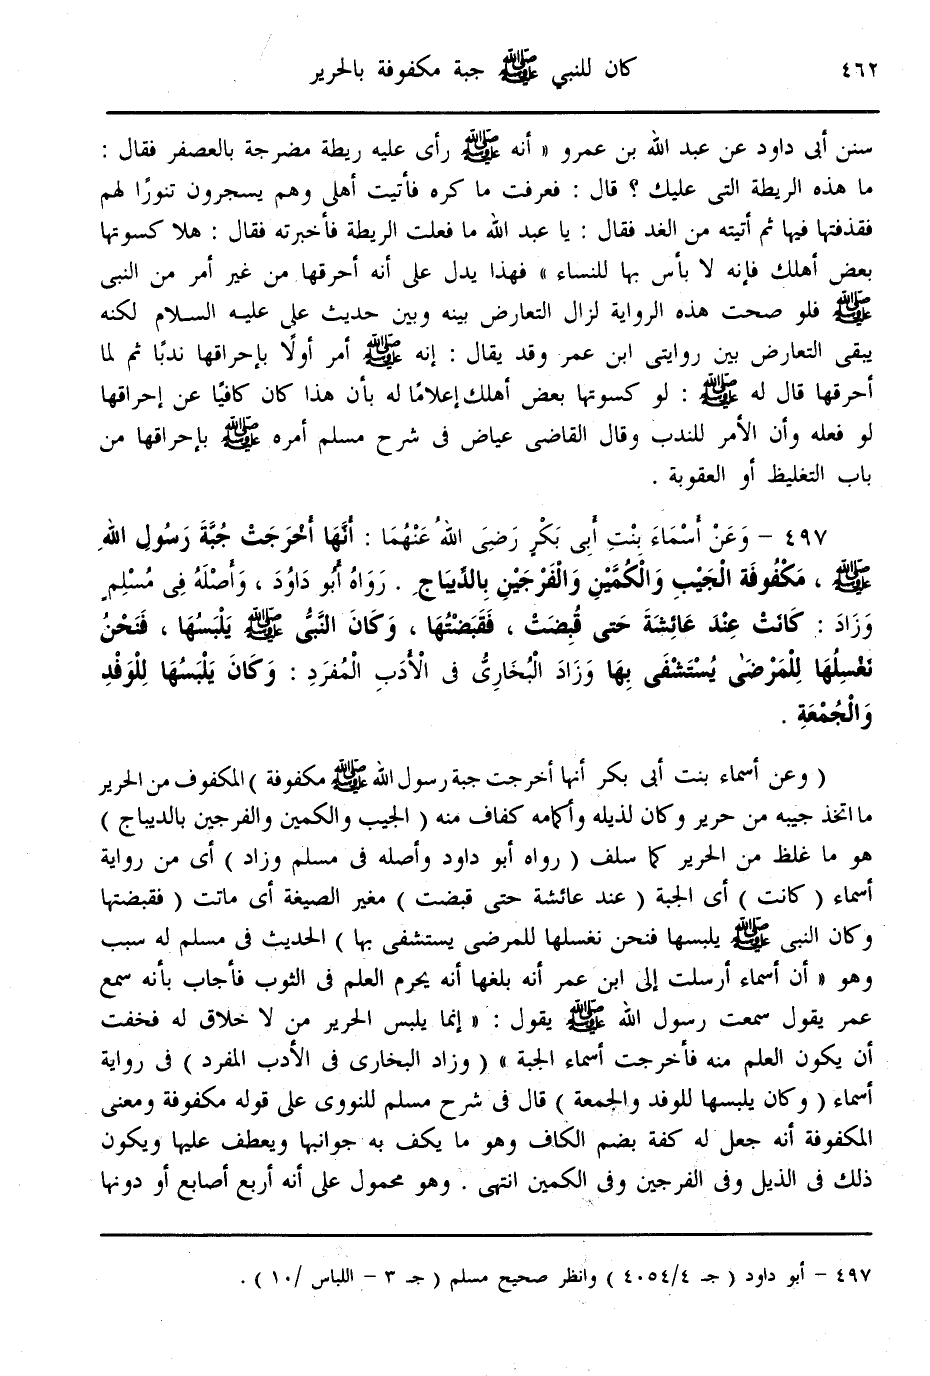 ٤٦٢ كان للنبي ﷺ جبة مكفوفة بالحرير
سنن أبى داود عن عبد الله بن عمرو « أنه ﷺ رأى عليه ريطة مضرجة بالعصفر فقال :
ما هذه الريطة التى عليك ؟ قال : فعرفت ما كره فأتيت أهلى وهم يسجرون تنورًا لهم
فقذفتها فيها ثم أتيته من الغد فقال : يا عبد الله ما فعلت الريطة فأخبرته فقال : هلا كسوتها
بعض أهلك فإنه لا بأس بها للنساء » فهذا يدل على أنه أحرقها من غير أمر من النبى
ﷺ فلو صحت هذه الرواية لزال التعارض بينه وبين حديث على عليه السلام لكنه
يبقى التعارض بين روايتى ابن عمر وقد يقال : إنه ﷺ أمر أولًا بإحراقها ندبًا ثم لما
أحرقها قال له ﷺ : لو كسوتها بعض أهلك إعلامًا له بأن هذا كان كافيًا عن إحراقها
لو فعله وأن الأمر للندب وقال القاضى عياض فى شرح مسلم أمره ﷺ بإحراقها من
باب التغليظ أو العقوبة .
٤٩٧ – وَعَنْ أَسْمَاءَ بِنْتِ أَبِى بَكْرٍ رَضِىَ اللهُ عَنْهُمَا : أَنَّهَا أَخْرَجَتْ جُبَّةَ رَسُولِ اللهِ
ﷺ ، مَكْفُوفَة الْجَيْبِ وَالْكُمَّيْنِ وَالْفَرْجَيْنِ بِالدِّيبَاجِ . رَوَاهُ أَبُو دَاوُدَ ، وَأَصْلُهُ فِى مُسْلِمٍ
وَزَادَ : كَانَتْ عِنْدَ عَائِشَةَ حَتى قُبِضَتْ ، فَقَبَضْتُهَا ، وَكَانَ النَّبىُّ ﷺ يَلْبَسُهَا ، فَنَحْنُ
نَغْسِلُهَا لِلْمَرْضَىٰ يُسْتَشْفَى بِهَا وَزَادَ الْبُخَارِىُّ فى الْأَدَبِ الْمُفْرَدِ : وَكَانَ يَلْبَسُهَا لِلْوَفْدِ
وَالْجُمْعَةِ .
( وعن أسماء بنت أبى بكر أنها أخرجت جبة رسول الله ﷺ مكفوفة ) المكفوف من الحرير
ما اتخذ جيبه من حرير وكان لذيله وأكمامه كفاف منه ( الجيب والكمين والفرجين بالديباج )
هو ما غلظ من الحرير كما سلف ( رواه أبو داود وأصله فى مسلم وزاد ) أى من رواية
أسماء ( كانت ) أى الجبة ( عند عائشة حتى قبضت ) مغير الصيغة أى ماتت ( فقبضتها
وكان النبى ﷺ يلبسها فنحن نغسلها للمرضى يستشفى بها ) الحديث فى مسلم له سبب
وهو « أن أسماء أرسلت إلى ابن عمر أنه بلغها أنه يحرم العلم فى الثوب فأجاب بأنه سمع
عمر يقول سمعت رسول الله ﷺ يقول : « إنما يلبس الحرير من لا خلاق له فخفت
أن يكون العلم منه فأخرجت أسماء الجبة » ( وزاد البخارى فى الأدب المفرد ) فى رواية
أسماء ( وكان يلبسها للوفد والجمعة ) قال فى شرح مسلم للنووى على قوله مكفوفة ومعنى
المكفوفة أنه جعل له كفة بضم الكاف وهو ما يكف به جوانبها ويعطف عليها ويكون
ذلك فى الذيل وفى الفرجين وفى الكمين انتهى . وهو محمول على أنه أربع أصابع أو دونها
٤٩٧ – أبو داود ( جـ ٤/ ٤٠٥٤ ) وانظر صحيح مسلم ( جـ ٣ – اللباس /١٠ ) .